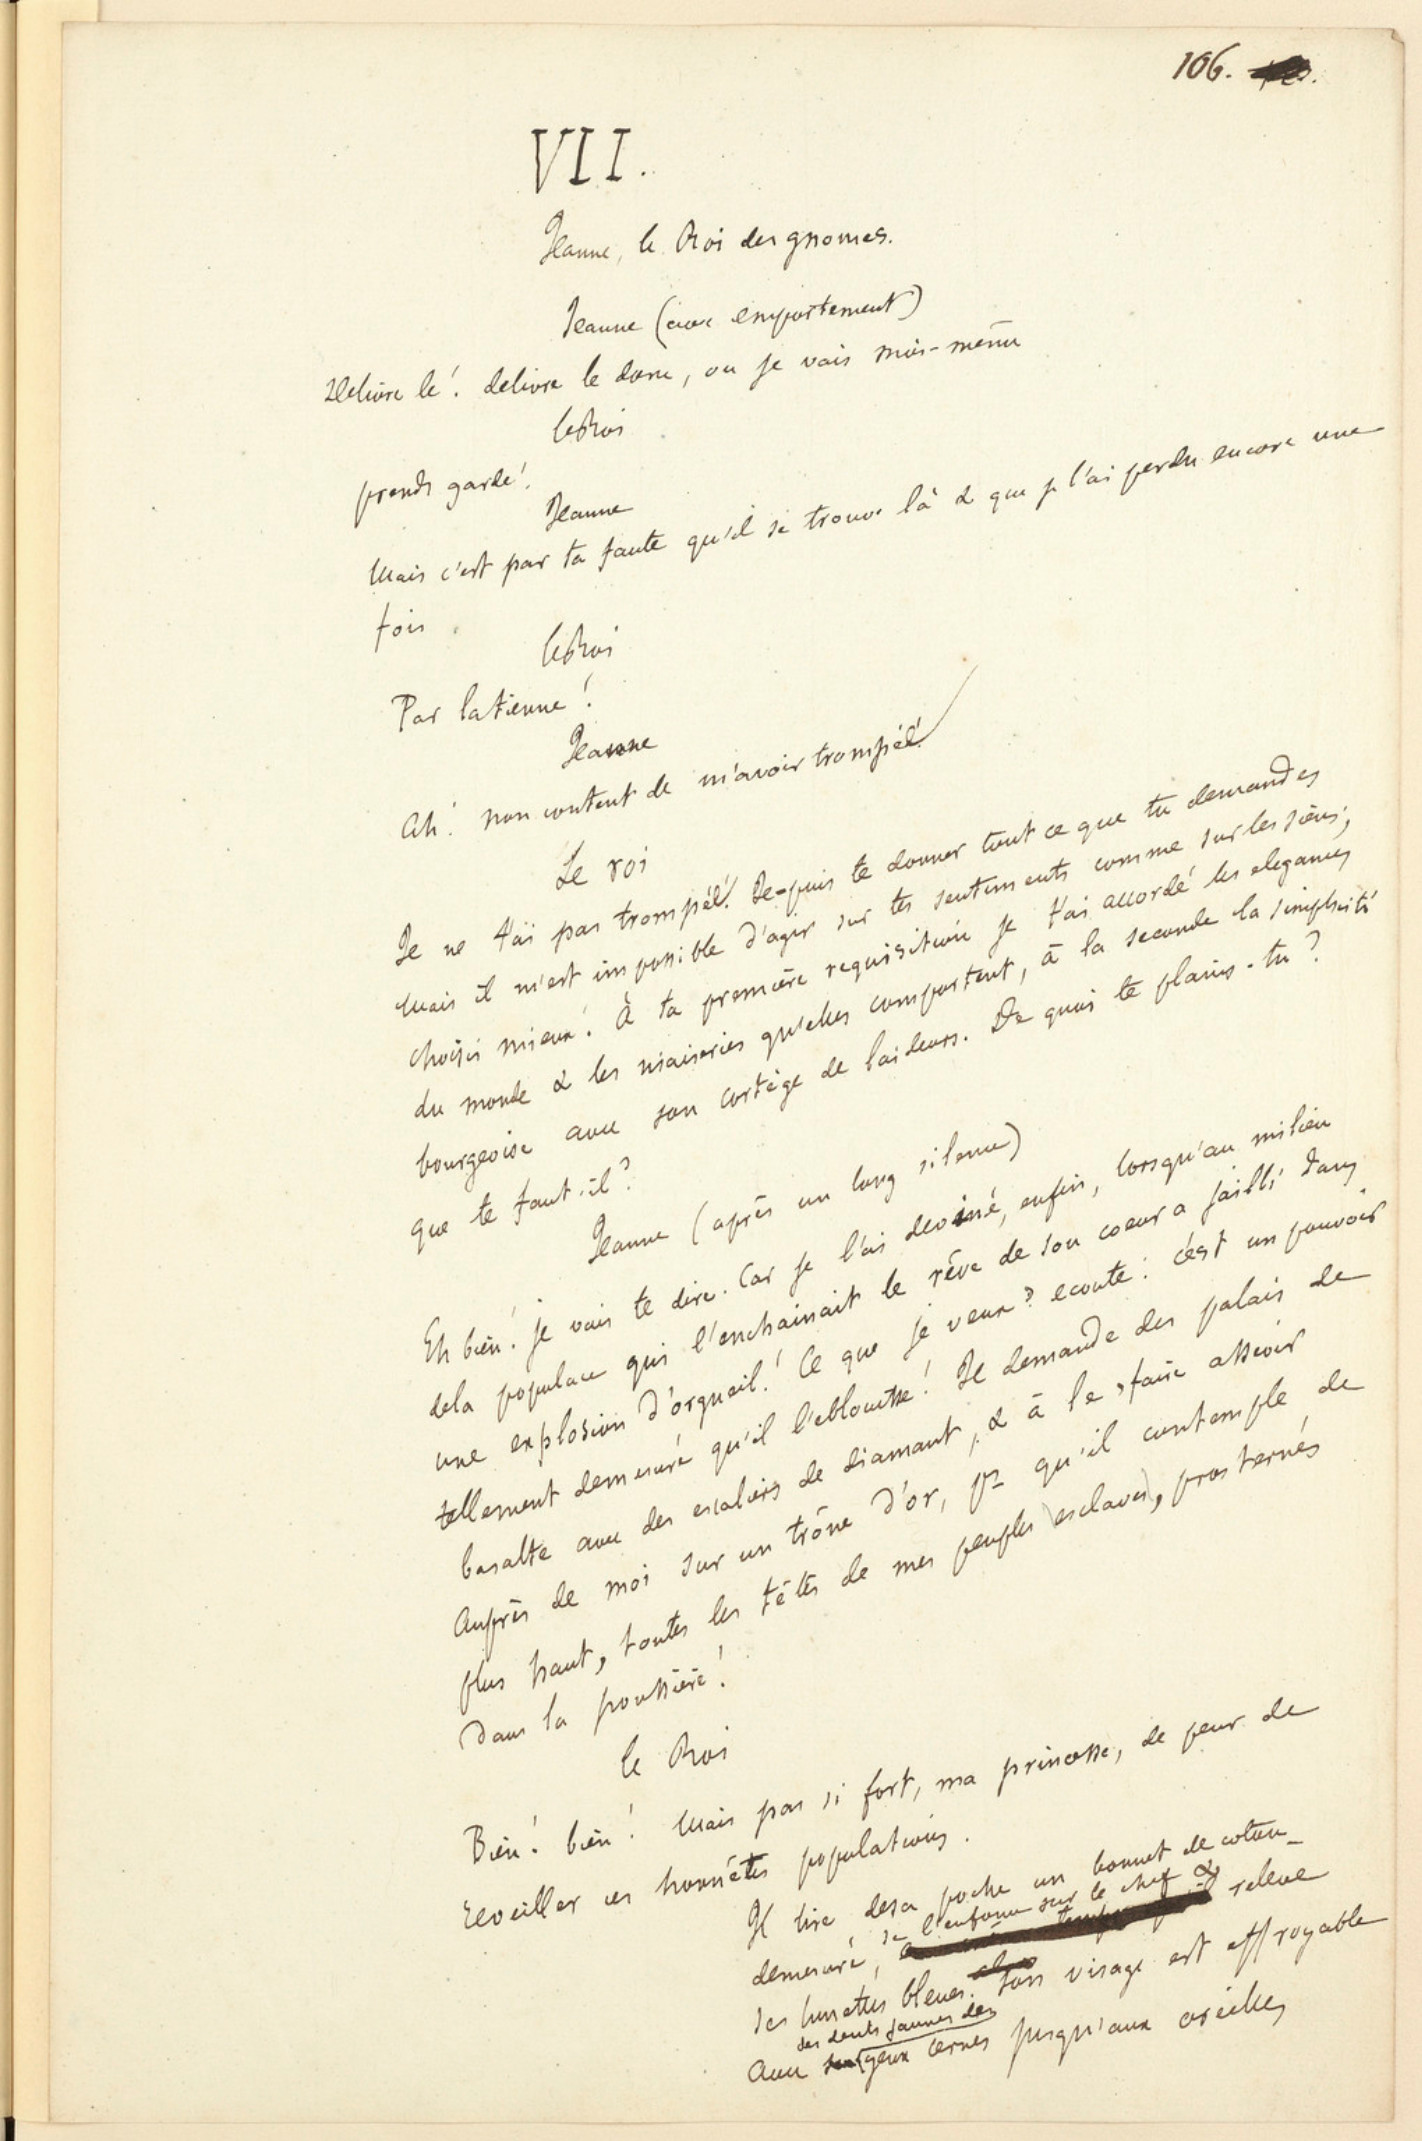 106.
VII.
Jeanne, le Roi des gnomes.
Jeanne (avec emportement)
Delivre le! delivre le donc, ou je vais moi-même
le Roi
prends garde!
Jeanne
Mais c'est par ta faute qu'il se trouve là & que je l'ai perdu encore une
fois
le Roi
Par la tienne!
Jeanne
Ah! non content de m'avoir trompée!
Le roi
Je ne t'ai pas trompée! Je puis te donner tout ce que tu demandes
mais il m'est impossible d'agir sur tes sentiments comme sur les siens;
choisis mieux! À ta première requisition je t'ai accordé les elegances
du monde & les niaiseries qu'elles comportent, à la seconde la simplicité
bourgeoise avec son cortège de laideurs. De quoi te plains-tu?
que te faut-il?
Jeanne (après un long silence)
Eh bien! je vais te dire. Car je l'ai deviné, enfin, lorsqu'au milieu
de la populace qui l'enchainait le rêve de son coeur a jailli dans
une explosion d'orgueil! Ce que je veux? ecoute: c'est un pouvoir
tellement demesuré qu'il l'eblouisse! Je demande des palais de
basalte avec des escaliers de diamant, & à le faire asseoir
Auprès de moi sur un trône d'or, pr qu'il contemple de
plus haut, toutes les têtes de mes peuples esclaves, prosternés
Dans la poussière!
le Roi
Bien! bien! Mais pas si fort, ma princesse, de peur de
reveiller ces honnêtes populations.
Il tire de sa poche un bonnet de coton
demesuré, se l'enfonce sur le chef & relève
ses lunettes bleues. Son visage est effroyable
des dents jaunes des
Avec yeux cernés jusqu'aux oreilles